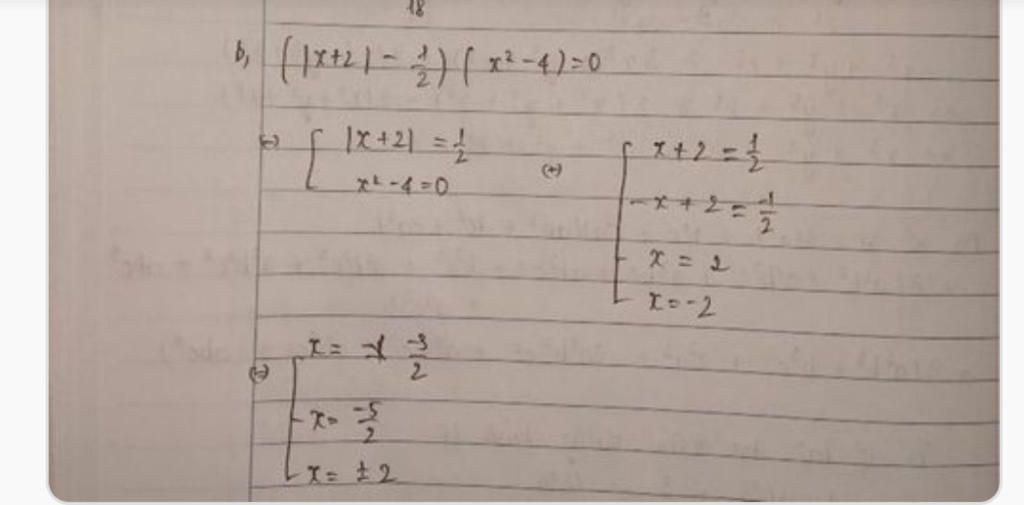 18
b, (|x+2| - 1/2)(x² - 4) = 0
(=) [ |x+2| = 1/2
x² - 4 = 0
(=) [ x + 2 = 1/2
- x + 2 = -1/2
x = 2
x = -2
(=) [ x = -3/2
x = -5/2
x = ± 2